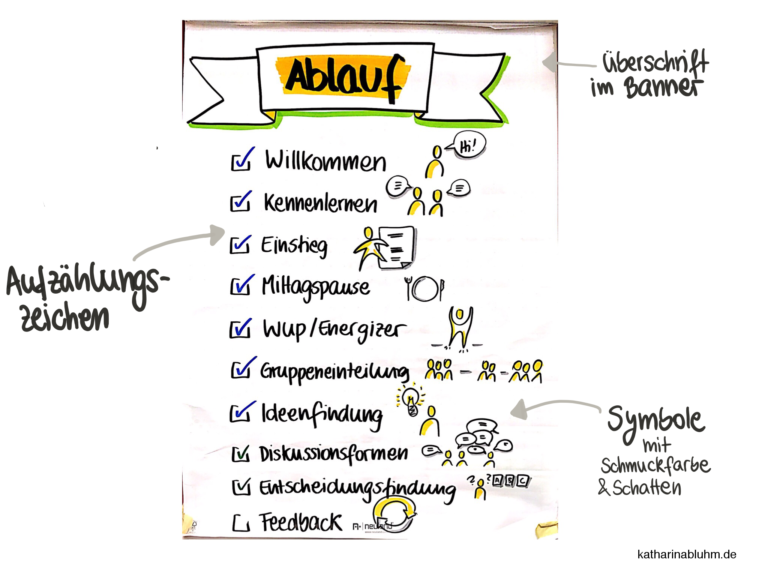 Ablauf
Überschrift
im Banner
Willkommen
Hi!
Kennenlernen
Einstieg
Aufzählungs-
zeichen
Mittagspause
Wup/Energizer
Gruppeneinteilung
Ideenfindung
Symbole
mit
Schmuckfarbe
& Schatten
Diskussionsformen
Entscheidungsfindung
? ? A B C
Feedback
neuland
katharinabluhm.de